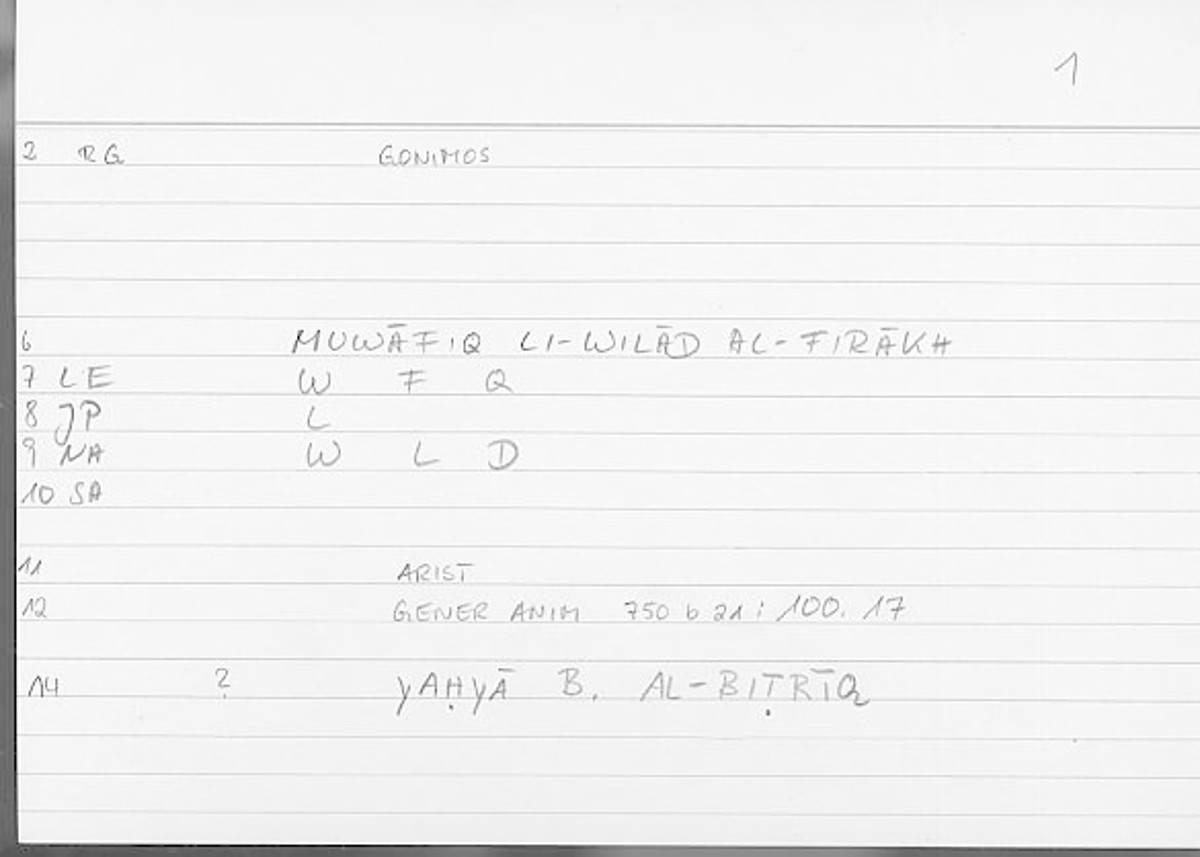 1
2 RG GONIMOS
6 MUWĀFIQ LI-WILĀD AL-FIRĀKH
7 LE W F Q
8 JP L
9 NA W L D
10 SA
11 ARIST
12 GENER ANIM 750 b 21 : 100. 17
14 ? YAḤYĀ B. AL-BIṬRĪQ